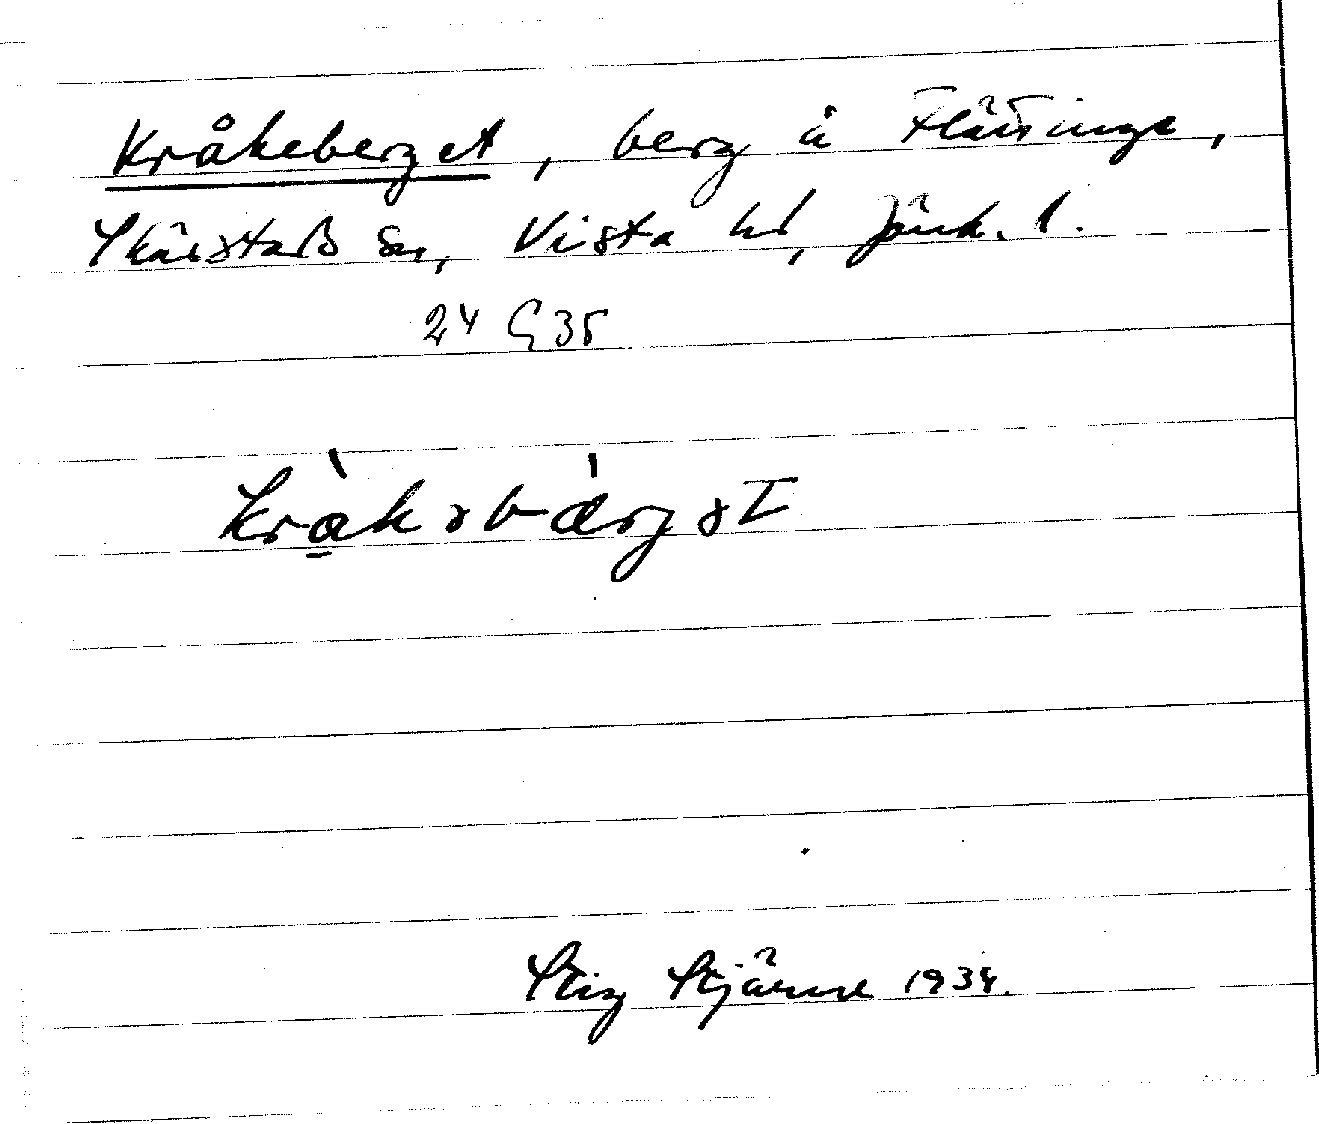 Kråkeberget, berg å Flättinge,
Skärstads sn, Vista hd, Jönk. l.
24 G 35
kråkəbärgət
Stig Stjärne 1934.